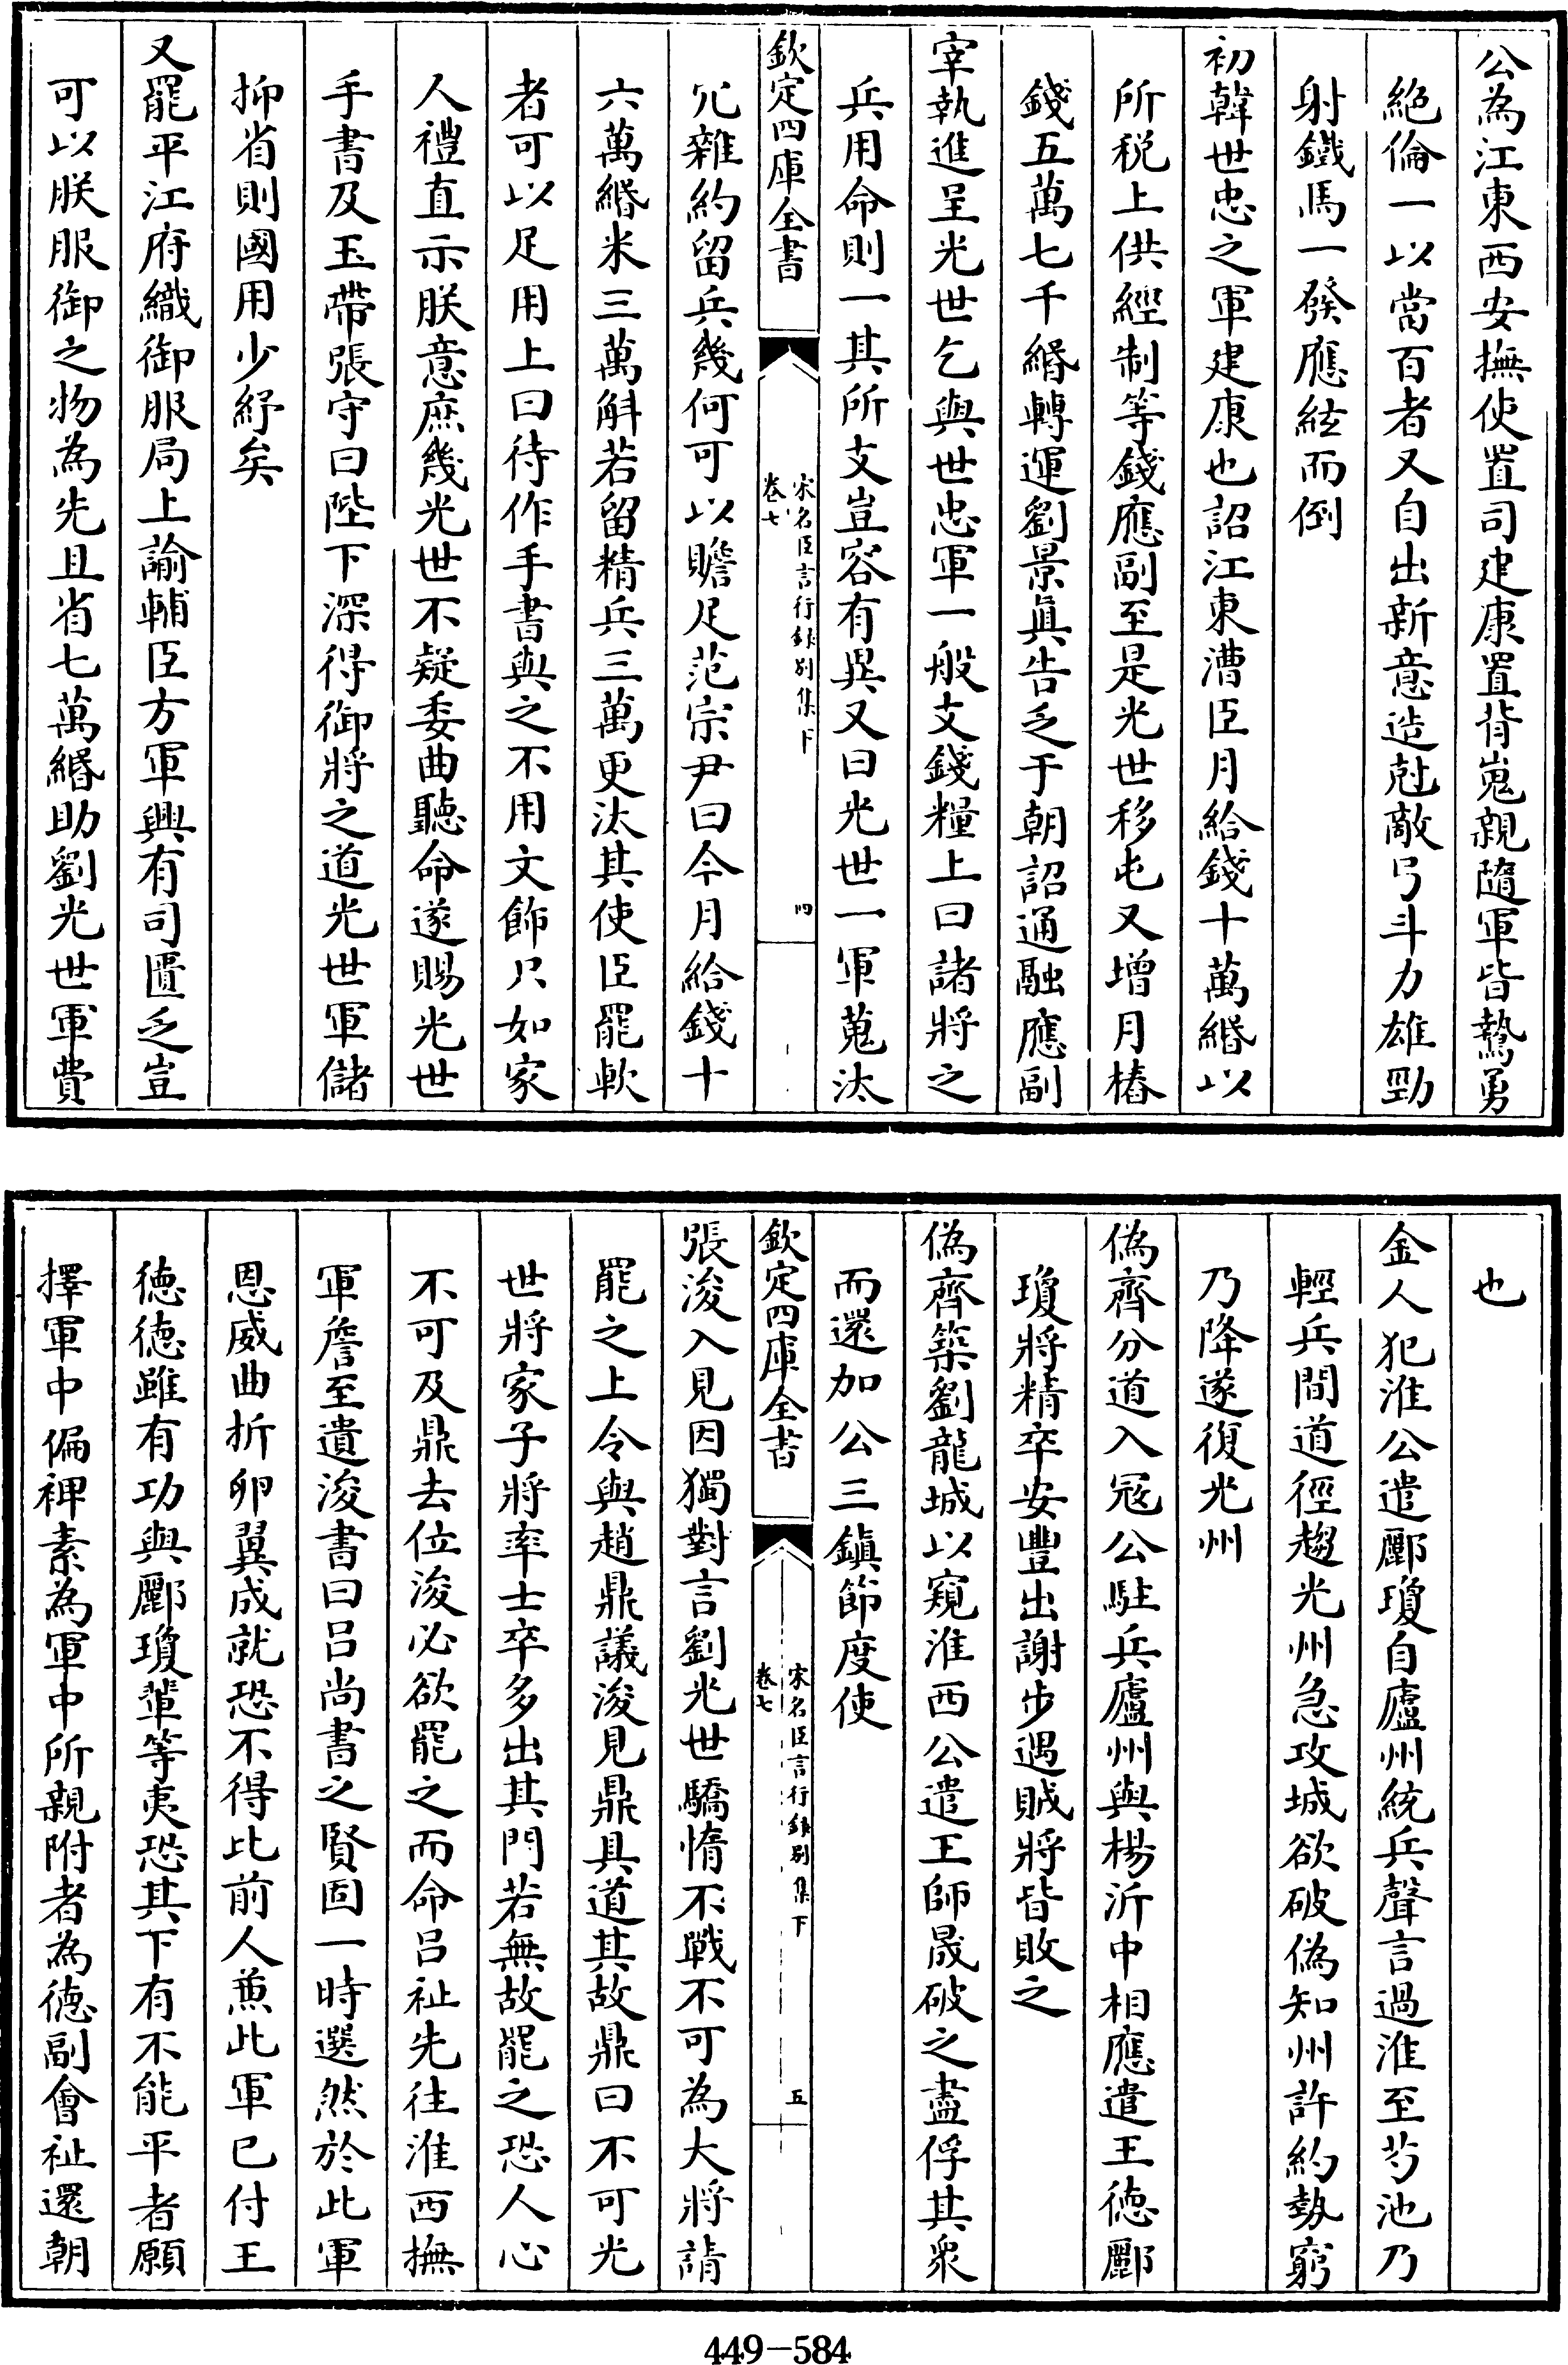 公為江東西安撫使置司建康置背嵬親隨軍皆驁勇
絕倫一以當百者又自出新意造尅敵弓斗力雄勁
射鐵馬一發應絃而倒
初韓世忠之軍建康也詔江東漕臣月給錢十萬緡以
所税上供經制等錢應副至是光世移屯又增月樁
錢五萬七千緡轉運劉景眞告乏于朝詔通融應副
宰執進呈光世乞與世忠軍一般支錢糧上曰諸將之
兵用命則一其所支豈容有異又曰光世一軍蒐汰
欽定四庫全書
宋名臣言行錄别集下
卷七
四
冗雜約留兵幾何可以贍足范宗尹曰今月給錢十
六萬緡米三萬斛若留精兵三萬更汰其使臣罷軟
者可以足用上曰待作手書與之不用文飾只如家
人禮直示朕意庶幾光世不疑委曲聽命遂賜光世
手書及玉帶張守曰陛下深得御將之道光世軍儲
抑省則國用少紓矣
又罷平江府織御服局上諭輔臣方軍興有司匱乏豈
可以朕服御之物為先且省七萬緡助劉光世軍費
也
金人犯淮公遣酈瓊自廬州統兵聲言過淮至芍池乃
輕兵間道徑趨光州急攻城欲破偽知州許約勢窮
乃降遂復光州
偽齊分道入冦公駐兵廬州與楊沂中相應遣王德酈
瓊將精卒安豐出謝步遇賊將皆敗之
偽齊築劉龍城以窺淮西公遣王師晟破之盡俘其衆
而還加公三鎮節度使
欽定四庫全書
宋名臣言行錄别集下
卷七
五
張浚入見因獨對言劉光世驕惰不戰不可為大將請
罷之上令與趙鼎議浚見鼎具道其故鼎曰不可光
世將家子將率士卒多出其門若無故罷之恐人心
不可及鼎去位浚必欲罷之而命吕祉先往淮西撫
軍詹至遺浚書曰吕尚書之賢固一時選然於此軍
恩威曲折卵翼成就恐不得比前人兼此軍已付王
德德雖有功與酈瓊輩等夷恐其下有不能平者願
擇軍中偏裨素為軍中所親附者為德副會祉還朝
449-584